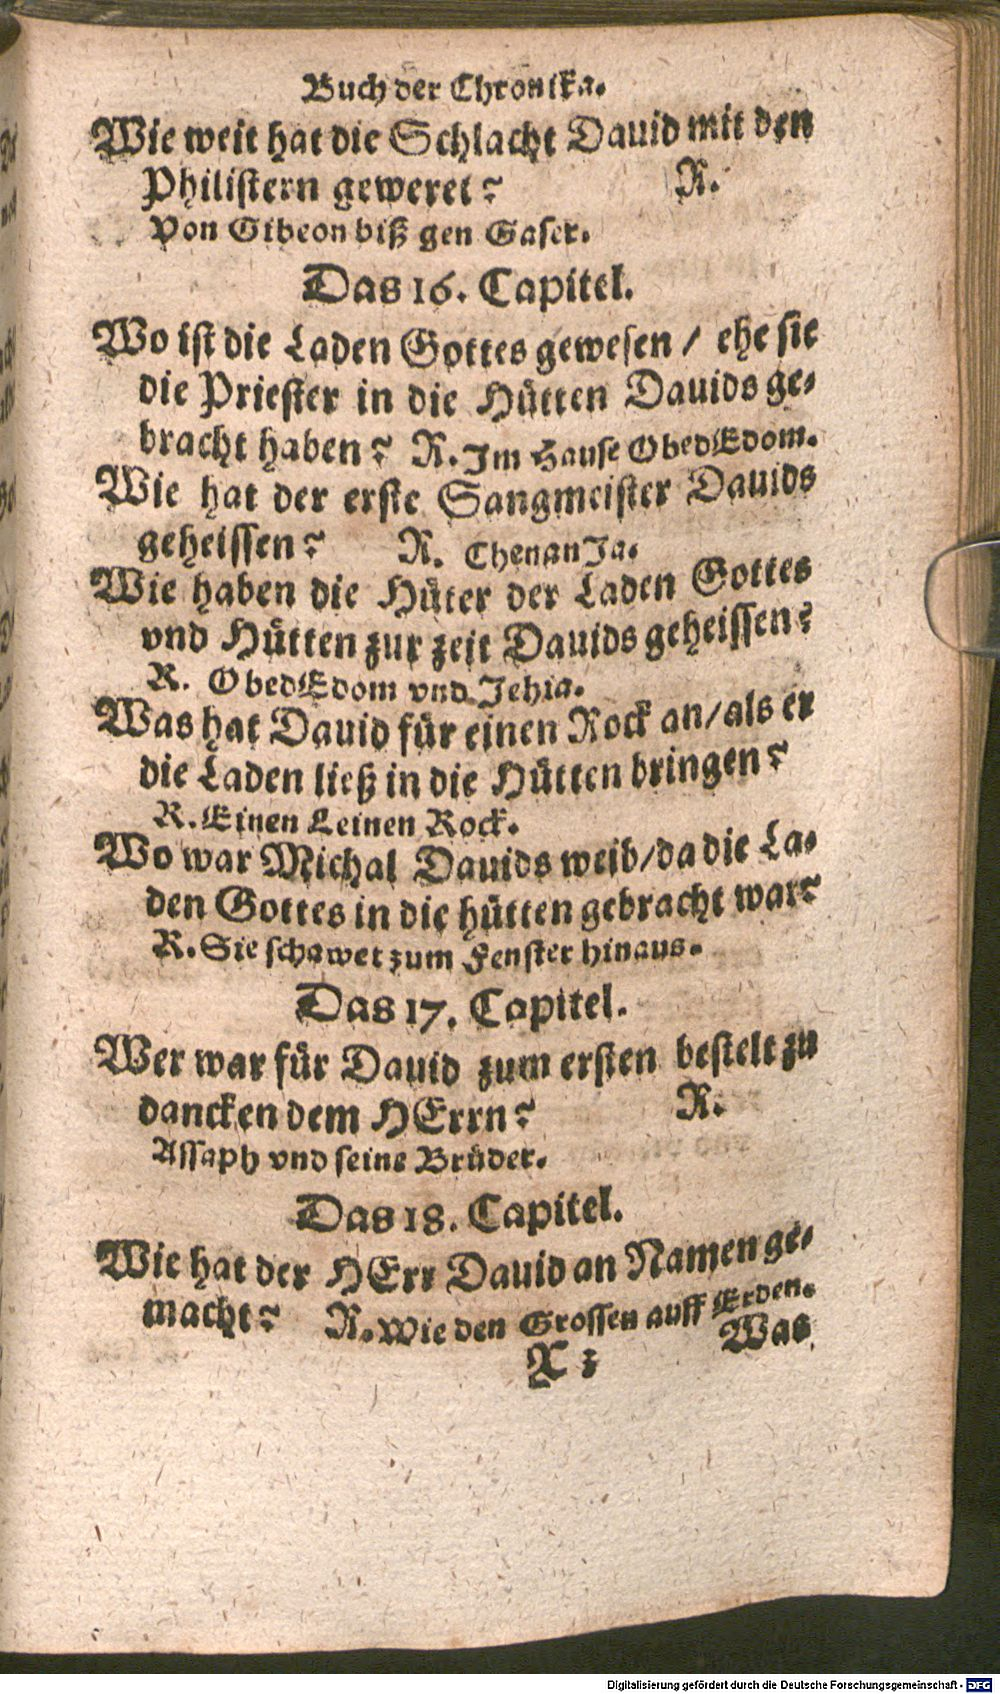 Buch der Chronika.
Wie weit hat die Schlacht Dauid mit den
Philistern geweret? R.
Von Gibeon biß gen Gaser.
Das 16. Capitel.
Wo ist die Laden Gottes gewesen / ehe sie
die Priester in die Hütten Dauids ge-
bracht haben? R. Im Hause ObedEdom.
Wie hat der erste Sangmeister Dauids
geheissen? R. ChenanJa.
Wie haben die Hüter der Laden Gottes
vnd Hütten zur zeit Dauids geheissen?
R. ObedEdom vnd Jehia.
Was hat Dauid für einen Rock an/als er
die Laden ließ in die Hütten bringen?
R. Einen Leinen Rock.
Wo war Michal Dauids weib/da die La-
den Gottes in die hütten gebracht war?
R. Sie schawet zum Fenster hinaus.
Das 17. Capitel.
Wer war für Dauid zum ersten bestelt zu
dancken dem HErrn? R.
Assaph vnd seine Brüder.
Das 18. Capitel.
Wie hat der HErr Dauid an Namen ge-
macht? R. Wie den Grossen auff Erden.
X z Was
Digitalisierung gefördert durch die Deutsche Forschungsgemeinschaft - DFG